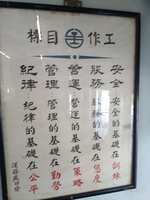 工作目標
安全 安全的基礎在訓練
服務 服務的基礎在態度
營運 營運的基礎在策略
管理 管理的基礎在勤勞
紀律 紀律的基礎在公平